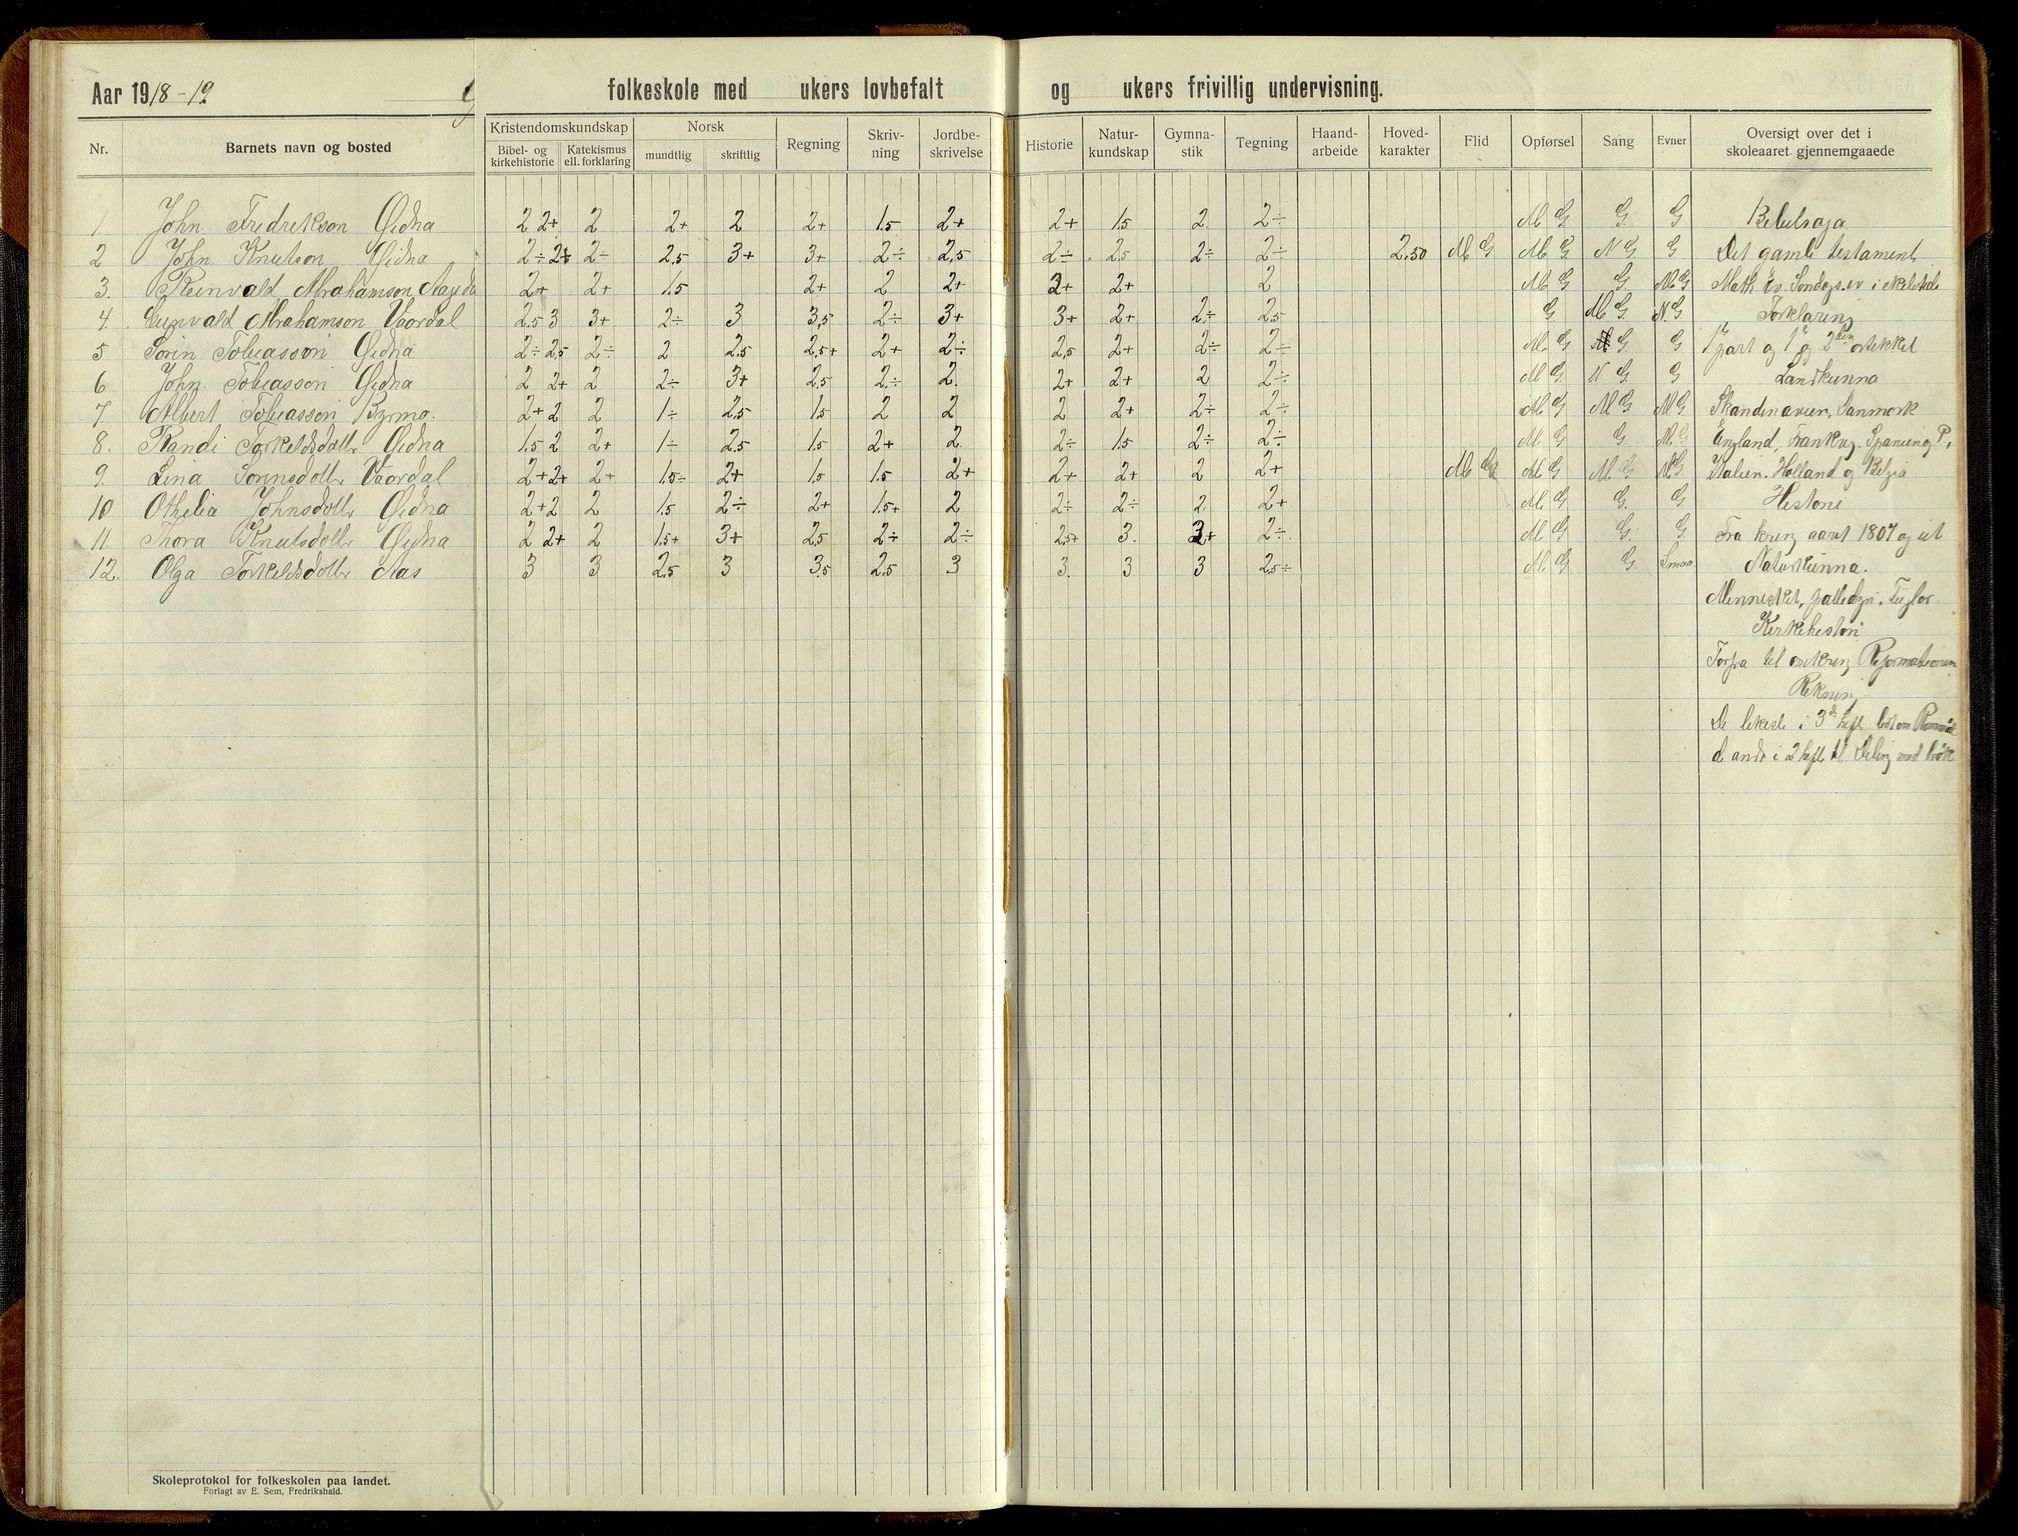 Aar 1918-19. folkeskole med ukers lovbefalt og ukers frivillig undervisning.
Nr. Barnets navn og bosted Kristendomskundskap Bibel- og kirkehistorie Katekismus ell. forklaring Norsk mundtlig skriftlig Regning Skriv-ning Jordbe-skrivelse Historie Natur-kundskap Gymna-stik Tegning Haand-arbeide Hoved-karakter Flid Opførsel Sang Evner Oversigt over det i skoleaaret gjennemgaaede
1 John Fredrikson Gidna 2 2+ 2 2+ 2 2+ 1.5 2+ 2+ 1.5 2 2÷ M G G. G Bibelsoga
2 John Knutson Gidna 2÷ 2+ 2÷ 2,5 3+ 3+ 2÷ 2,5 2÷ 2,5 2÷ 2÷ 2,50 M G M G N G G Det gamle testament
3. Reinvald Abrahamson 2+ 2+ 1.5 2+ 2 2+ 2+ 2+ 2 M G G M G Math Ev. Søndags.ev i
4. Abrahamson Vaardal 2.5 3 3+ 2÷ 3 3,5 2÷ 3+ 3+ 2+ 2÷ 2,5 G M G N.G Forklaring
5 Sorin Tobiasson Gidna 2÷ 2,5 2÷ 2 2,5 2,5+ 2+ 2÷ 2,5 2+ 2÷ 2÷ M G G G 1ste part og 1ste og 2den artikkel
6 John Tobiasson Gidna 2 2+ 2 2÷ 3+ 2,5 2÷ 2. 2+ 2+ 2 2÷ M G. N G. G Landkunna
7. Albert Tobiasson Byrmo. 2+ 2 2 1÷ 2,5 1.5 2 2 2 2+ 2÷ 2÷ M G M G M G Skandinavien, Danmork
8. Randi Torkeldsdottr Gidna 1.5 2 2+ 1÷ 2,5 1.5 2+ 2 2÷ 1.5 2÷ 2÷ M G G. M.G England, Frankrig. Spanien og P.,
9. Lina Sorinsdottr Vaardal 2+ 2+ 2+ 1.5÷ 2+ 1.5 1.5 2+ 2+ 2+ 2 2+ M G M G M G M G Italien. Holland og Belgia
10 Othelia Johnsdottr Gidna 2+ 2 2 1.5 2÷ 2+ 1.5+ 2 2÷ 2÷ 2 2+ M G G. G. Historie
11. Thora Knutsdottr Gidna 2 2+ 2 1.5+ 3+ 2,5 2÷ 2÷ 2,5+ 3. 2+ 2÷ M G G. G. Fra kring aaret 1807 og ut
12. Olga Torkeldsdottr Aas 3 3 2.5 3 3,5 2.5 3 3. 3 3 2,5÷ M G G. Smaa Naturkunna.
Mennesket, Fuglar
Kirkehistori
Forfra til omkring Reformationen
Rekning
De likeste i 3de hefte
d andr i 2 hefte til Deling med brøk
Skoleprotokol for folkeskolen paa landet.
Forlagt av E. Sem, Fredrikshald.